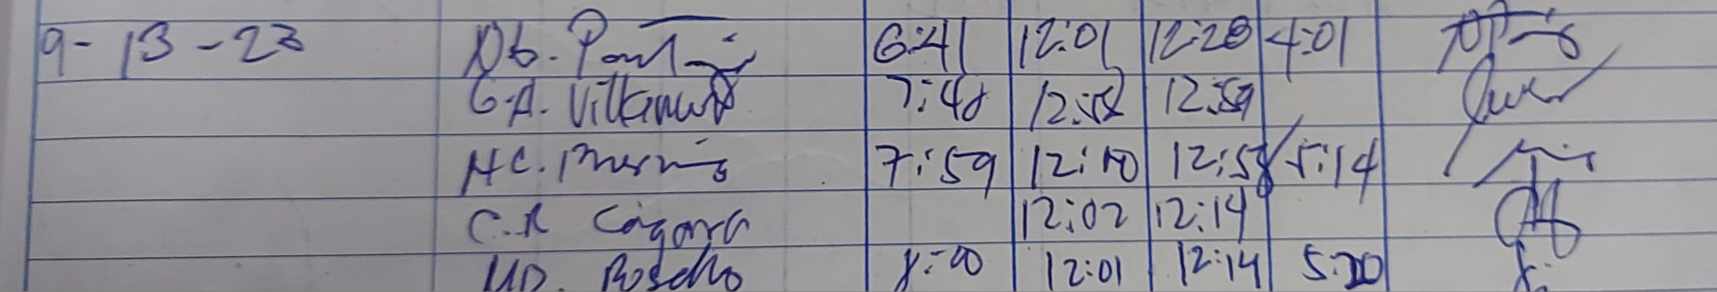 9-13-23 Db. 6:41 12:01 12:28 4:01
G.A. Villanueva 7:48 12:58 12:59
HC. 7:59 12:10 12:58 5:14
C.R Cagara 12:02 12:14
MD. Rosello 8:00 12:01 12:14 5:20